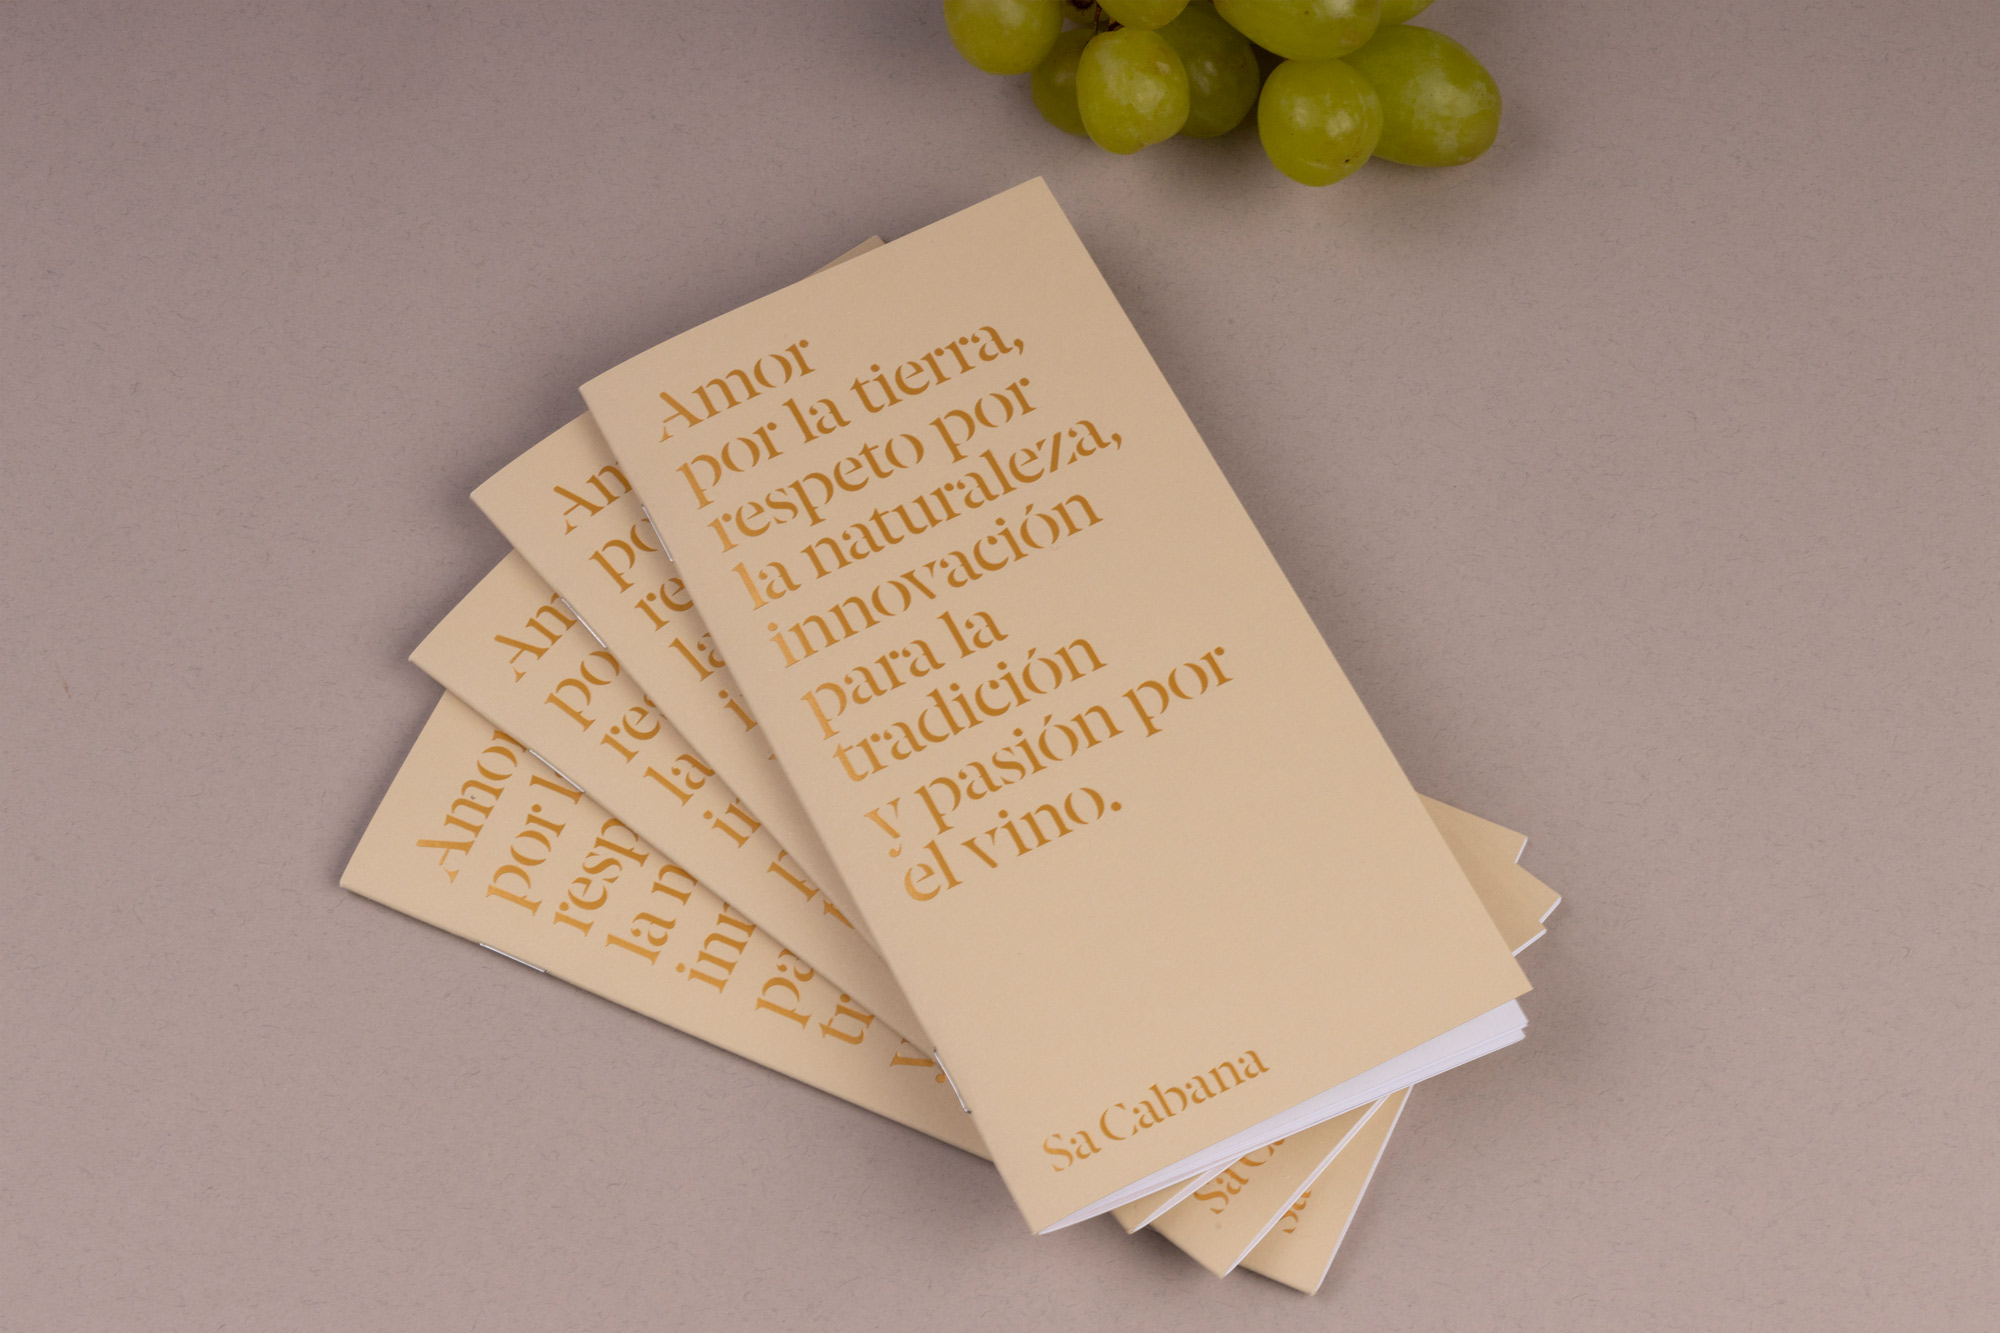 Amor
por la tierra,
respeto por
la naturaleza,
innovación
para la
tradición
y pasión por
el vino.
Sa Cabana